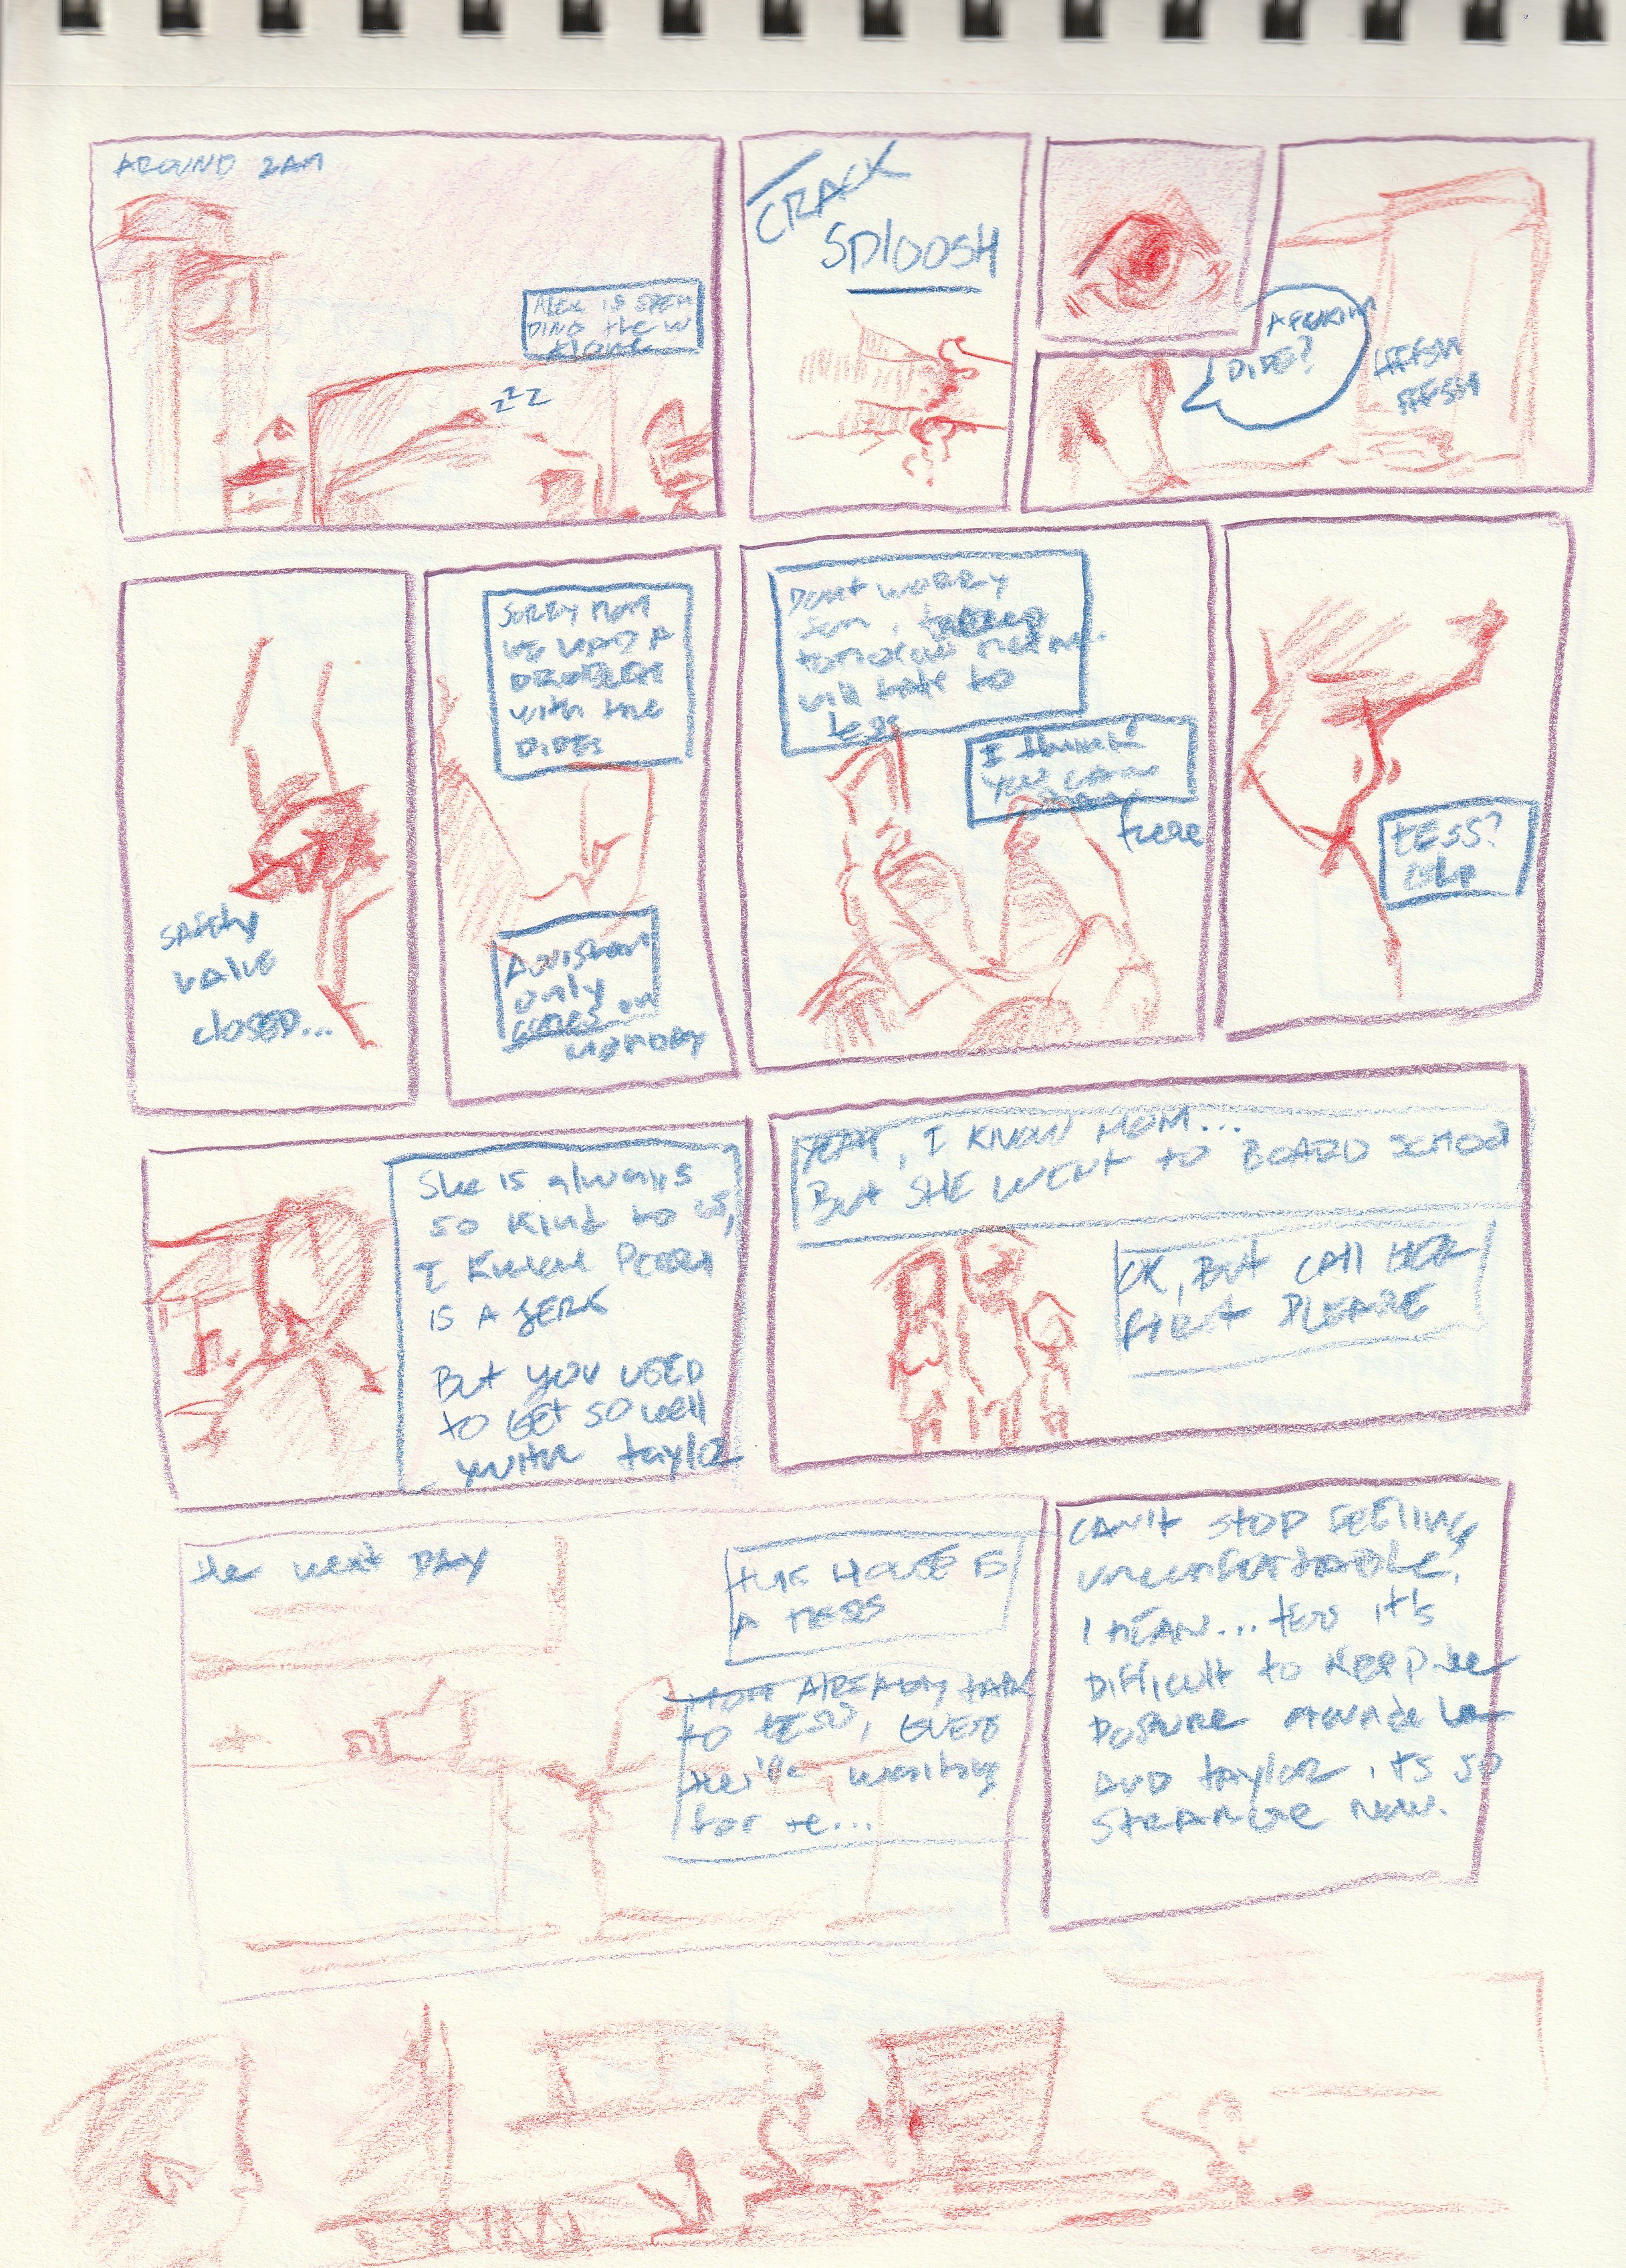 AROUND 2AM
ALEX IS SPEN
DING the W
Alone
zzz
CRACK
SPLOOSH
A FUCKIN
PIPE?
FFSSH
FFSSH
SAFETY
VALVE
CLOSED...
SORRY MOM
WE HAVE A
PROBLEM
with the
PIPES
only
COMES on
MONDAY
Don't WORRY
Son,
tomorrow
will talk to
tess
I think
you can
there
tESS?
She is always
so kind to us,
I know
IS A JERK
But you USED
to GET so well
with taylor
YEAH, I KNOW MOM...
But SHE went to BOARD SCHOOl
OK, But CALL HER
first PLEASE
the next DAY
this HOUSE IS
A MESS
MOM AlREADY talk
to tESS, GUESS
she'll waiting
for me...
CAN't stop FEEling
uncomfortable,
I MEAN... tess it's
Difficult to KEEP the
posture
AND taylor, it's so
STRANGE now.